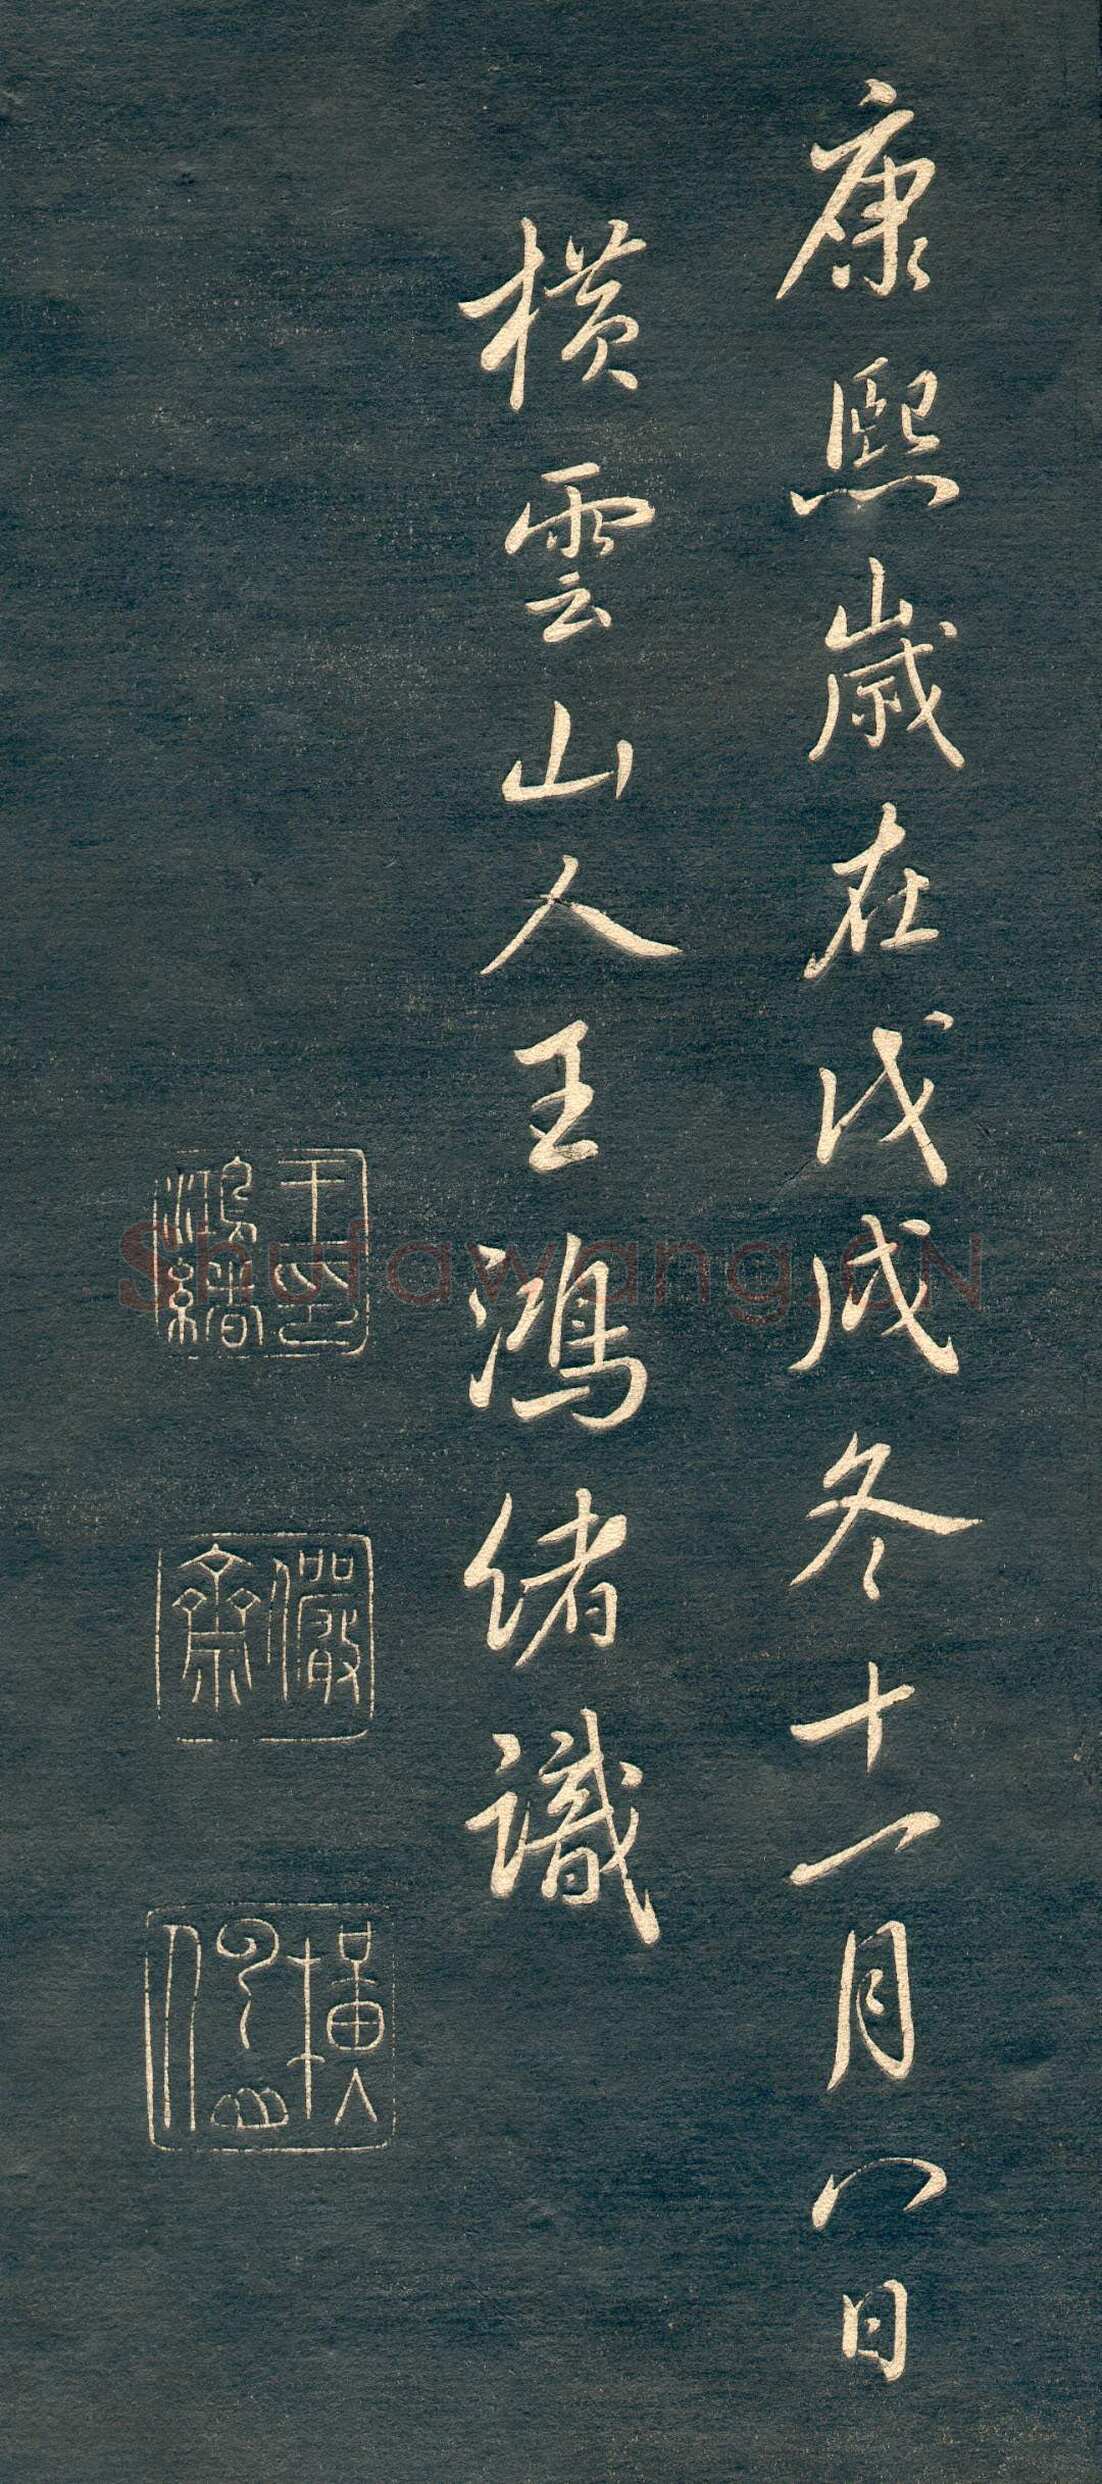 康熙歲在戊戌冬十一月八日
橫雲山人王鴻緒識
王印鴻緒
儼齋
橫雲山人
Shufawang.CN